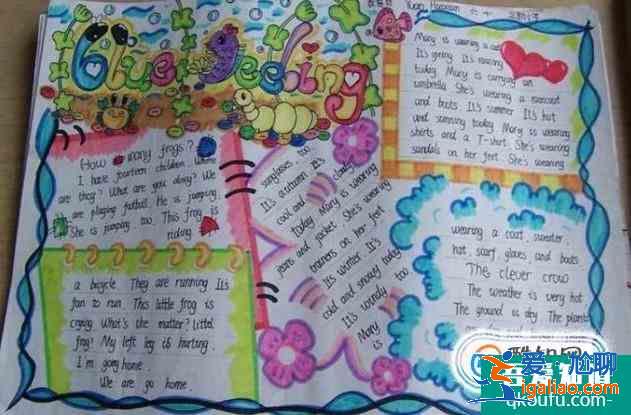 Blue Feeling
Yuan Haoxuan
How many frogs?
I have fourteen children. Where
are they? What are you doing? We
are playing football. He is jumping.
She is jumping too. This frog is
riding
a bicycle. They are running. It's
fun to run. This little frog is
crying. What's the matter? Littel
frog! My left leg is hurting.
I'm going home.
We are go home.
Mary is wearing a
It's spring. It's raining
today. Mary is carrying an
umbrella. She's wearing a raincoat
and boots. It's summer. It's hot
and sunny today. Mary is wearing
shorts and a T-shirt. She's wearing
sandals on her feet. She's wearing
sunglasses too.
It's autumn. It's
cool and cloudy
today. Mary is wearing
jeans and jacket. She's wearing
trainers on her feet.
It's winter. It's
cold and snowy today.
It's windy too.
Mary
is
wearing a coat, sweater,
hat, scarf, gloves and boots.
The clever crow
The weather is very hot.
The ground is dry. The plants
酷知网
爱尬聊
igaliao.com